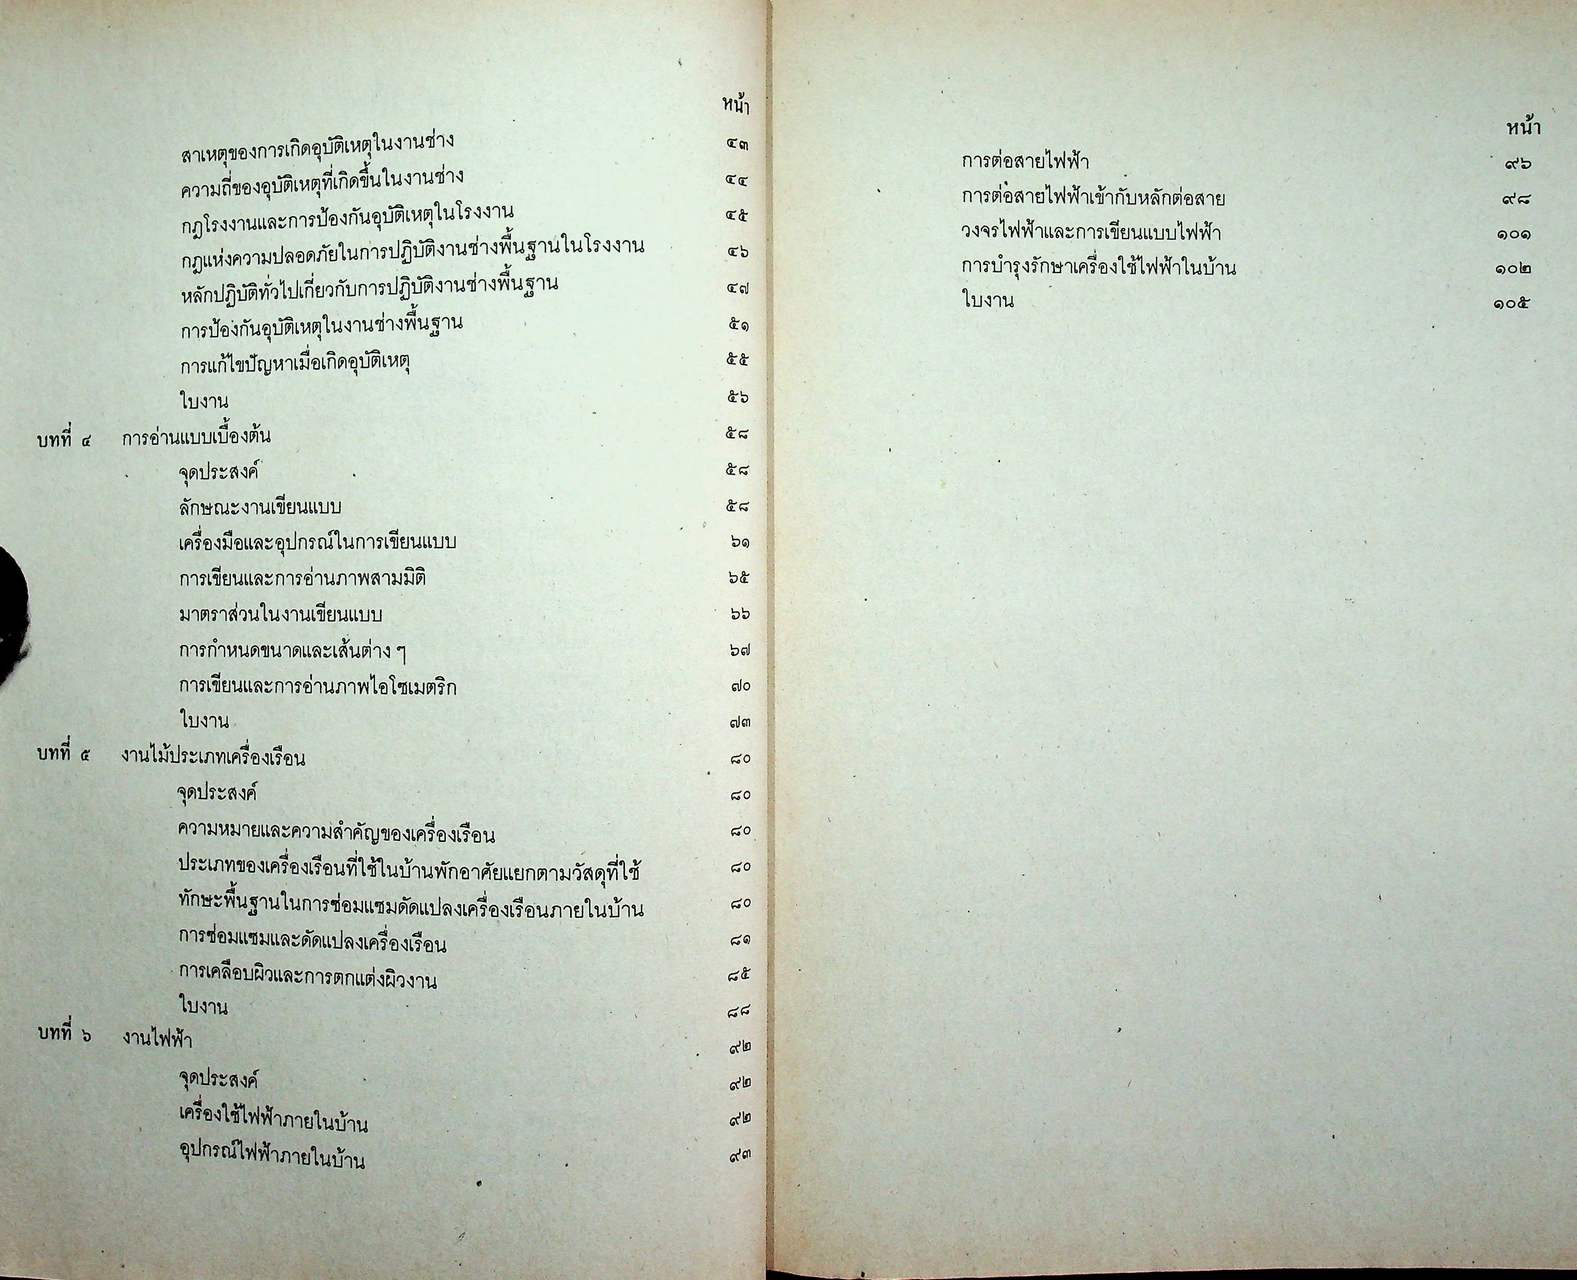 หน้า
สาเหตุของการเกิดอุบัติเหตุในงานช่าง ๔๓
ความถี่ของอุบัติเหตุที่เกิดขึ้นในงานช่าง ๔๔
กฎโรงงานและการป้องกันอุบัติเหตุในโรงงาน ๔๕
กฎแห่งความปลอดภัยในการปฏิบัติงานช่างพื้นฐานในโรงงาน ๔๖
หลักปฏิบัติทั่วไปเกี่ยวกับการปฏิบัติงานช่างพื้นฐาน ๔๗
การป้องกันอุบัติเหตุในงานช่างพื้นฐาน ๕๑
การแก้ไขปัญหาเมื่อเกิดอุบัติเหตุ ๕๕
ใบงาน ๕๖
บทที่ ๔ การอ่านแบบเบื้องต้น ๕๘
จุดประสงค์ ๕๘
ลักษณะงานเขียนแบบ ๕๘
เครื่องมือและอุปกรณ์ในการเขียนแบบ ๖๑
การเขียนและการอ่านภาพสามมิติ ๖๕
มาตราส่วนในงานเขียนแบบ ๖๖
การกำหนดขนาดและเส้นต่าง ๆ ๖๗
การเขียนและการอ่านภาพไอโซเมตริก ๗๐
ใบงาน ๗๓
บทที่ ๕ งานไม้ประเภทเครื่องเรือน ๘๐
จุดประสงค์ ๘๐
ความหมายและความสำคัญของเครื่องเรือน ๘๐
ประเภทของเครื่องเรือนที่ใช้ในบ้านพักอาศัยแยกตามวัสดุที่ใช้ ๘๐
ทักษะพื้นฐานในการซ่อมแซมดัดแปลงเครื่องเรือนภายในบ้าน ๘๐
การซ่อมแซมและดัดแปลงเครื่องเรือน ๘๑
การเคลือบผิวและการตกแต่งผิวงาน ๘๕
ใบงาน ๘๘
บทที่ ๖ งานไฟฟ้า ๙๒
จุดประสงค์ ๙๒
เครื่องใช้ไฟฟ้าภายในบ้าน ๙๒
อุปกรณ์ไฟฟ้าภายในบ้าน ๙๓
หน้า
การต่อสายไฟฟ้า ๙๖
การต่อสายไฟฟ้าเข้ากับหลักต่อสาย ๙๘
วงจรไฟฟ้าและการเขียนแบบไฟฟ้า ๑๐๑
การบำรุงรักษาเครื่องใช้ไฟฟ้าในบ้าน ๑๐๒
ใบงาน ๑๐๕